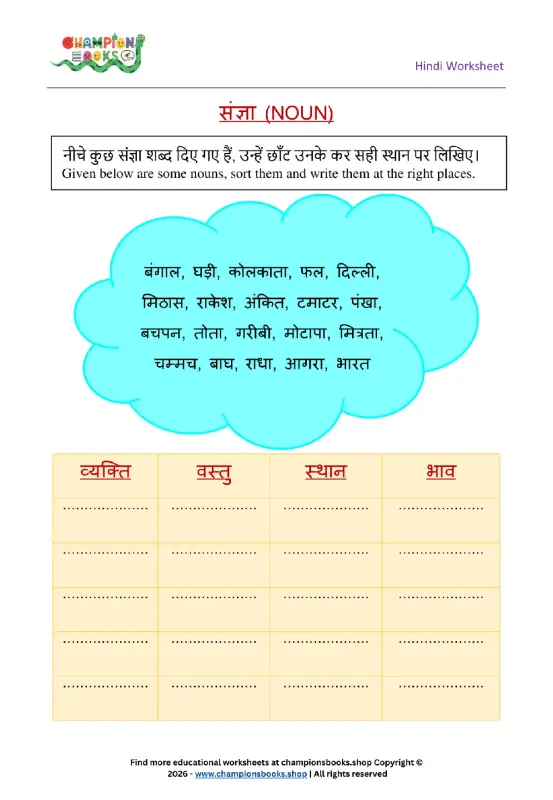 CHAMPIONS
BOOKS
Hindi Worksheet
संज्ञा (NOUN)
नीचे कुछ संज्ञा शब्द दिए गए हैं, उन्हें छाँट उनके कर सही स्थान पर लिखिए।
Given below are some nouns, sort them and write them at the right places.
बंगाल, घड़ी, कोलकाता, फल, दिल्ली,
मिठास, राकेश, अंकित, टमाटर, पंखा,
बचपन, तोता, गरीबी, मोटापा, मित्रता,
चम्मच, बाघ, राधा, आगरा, भारत
व्यक्ति वस्तु स्थान भाव
Find more educational worksheets at championsbooks.shop Copyright ©
2026 - www.championsbooks.shop | All rights reserved